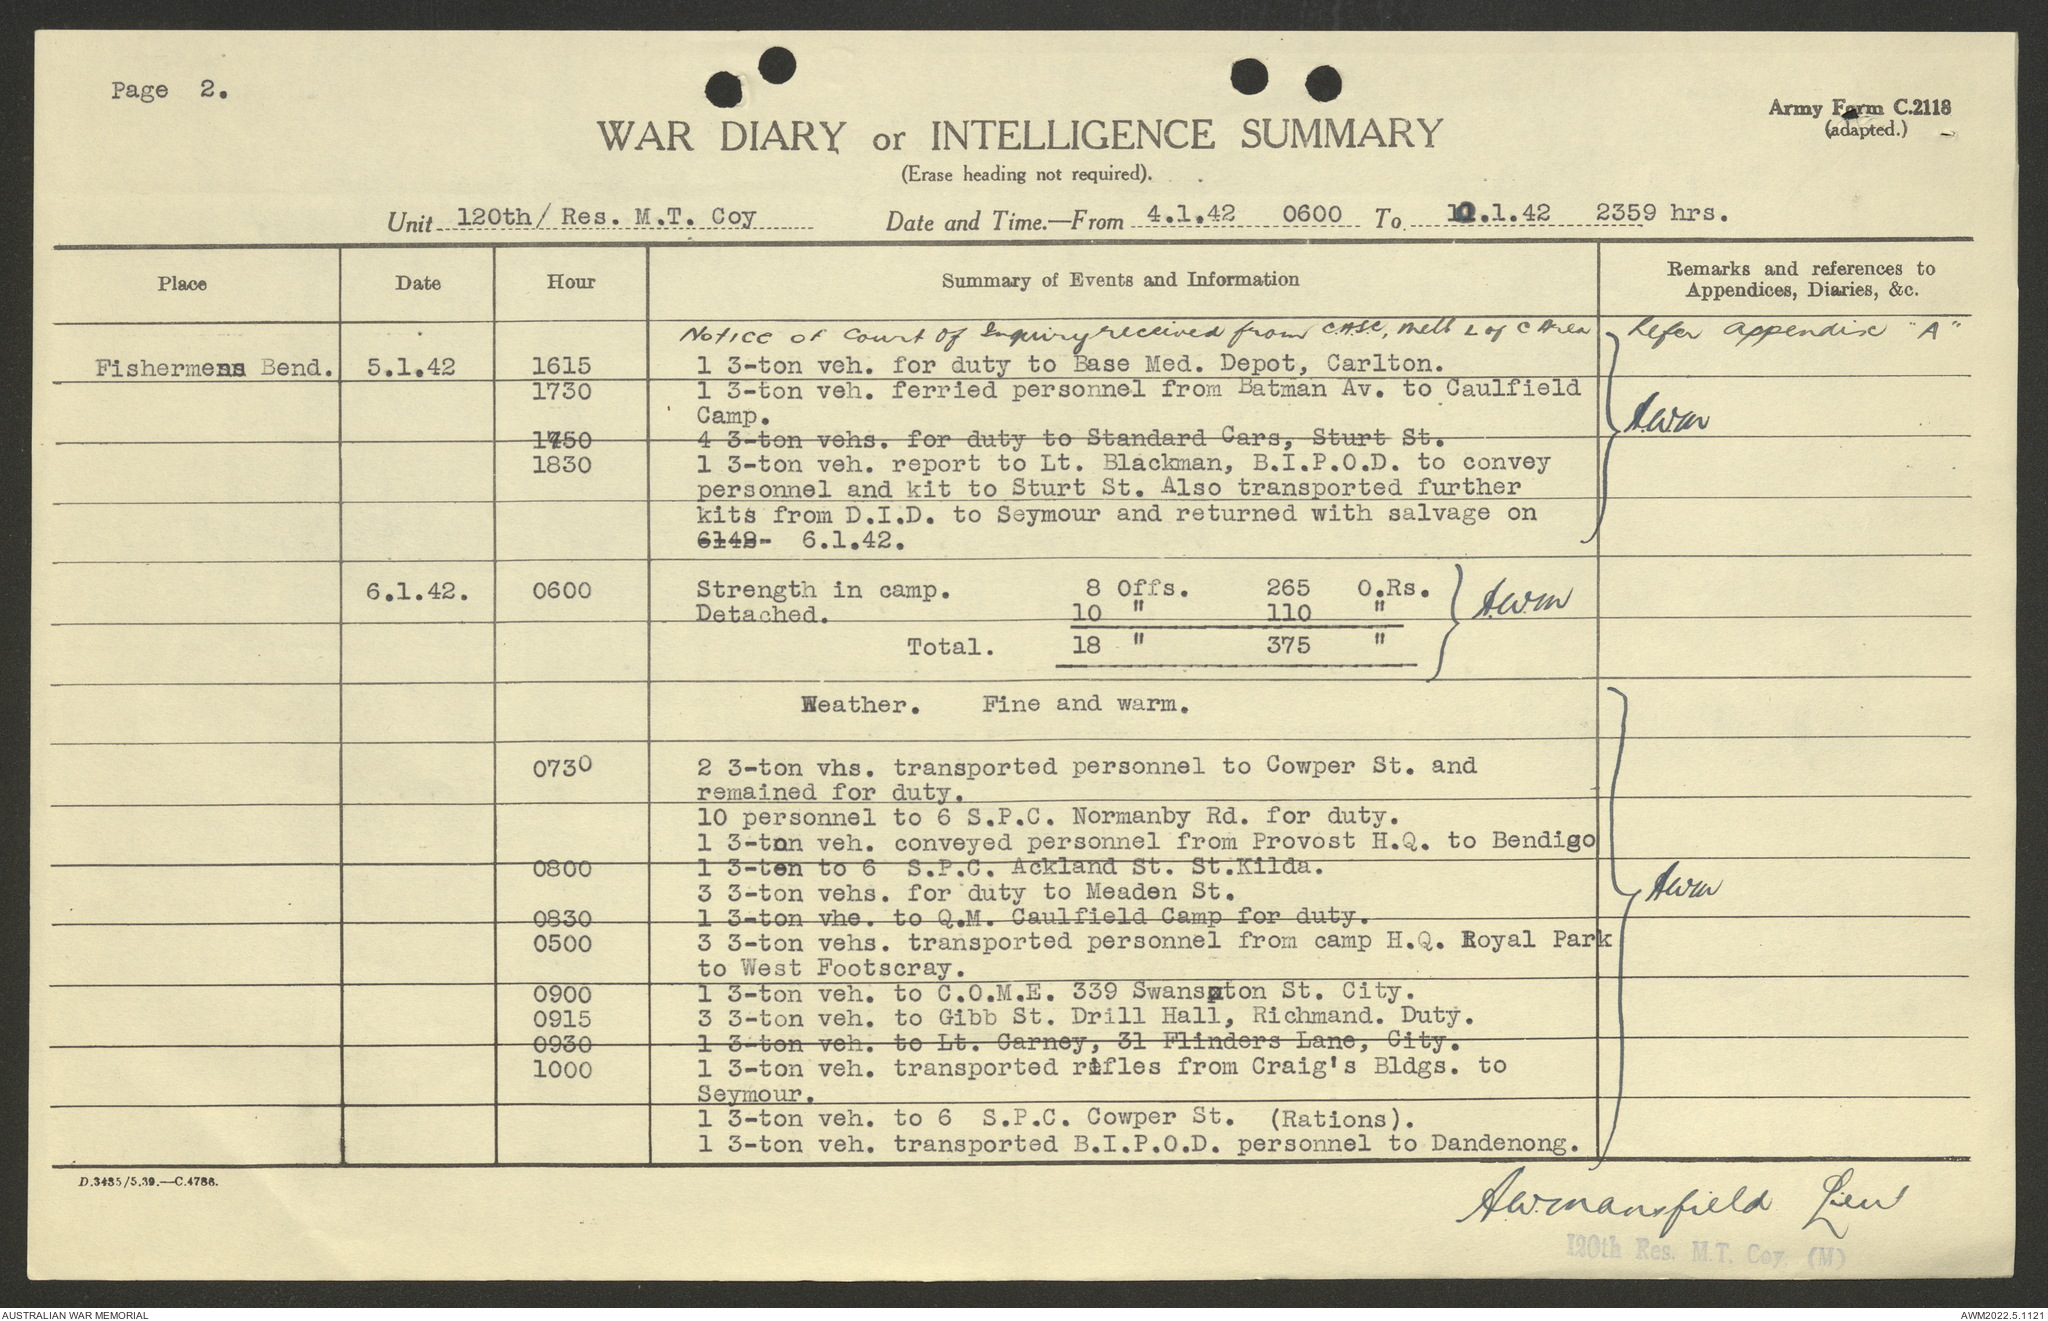 Page 2.
Army Form C.2118
(adapted.)
WAR DIARY or INTELLIGENCE SUMMARY
(Erase heading not required).
Unit 120th/ Res. M.T. Coy Date and Time.—From 4.1.42 0600 To 10.1.42 2359 hrs.
Place Date Hour Summary of Events and Information Remarks and references to
Appendices, Diaries, &c.
Notice of Court of Inquiry received from CASC, Melb L of C Area Refer Appendix "A"
Fishermens Bend. 5.1.42 1615 1 3-ton veh. for duty to Base Med. Depot, Carlton.
1730 1 3-ton veh. ferried personnel from Batman Av. to Caulfield
Camp. AWM
1750 4 3-ton vehs. for duty to Standard Cars, Sturt St.
1830 1 3-ton veh. report to Lt. Blackman, B.I.P.O.D. to convey
personnel and kit to Sturt St. Also transported further
kits from D.I.D. to Seymour and returned with salvage on
6142- 6.1.42.
6.1.42. 0600 Strength in camp. 8 Offs. 265 O.Rs. AWM
Detached. 10 " 110 "
Total. 18 " 375 "
Weather. Fine and warm.
0730 2 3-ton vhs. transported personnel to Cowper St. and
remained for duty.
10 personnel to 6 S.P.C. Normanby Rd. for duty.
1 3-ton veh. conveyed personnel from Provost H.Q. to Bendigo
0800 1 3-ton to 6 S.P.C. Ackland St. St.Kilda.
3 3-ton vehs. for duty to Meaden St. AWM
0830 1 3-ton vhe. to Q.M. Caulfield Camp for duty.
0500 3 3-ton vehs. transported personnel from camp H.Q. Royal Park
to West Footscray.
0900 1 3-ton veh. to C.O.M.E. 339 Swanston St. City.
0915 3 3-ton veh. to Gibb St. Drill Hall, Richmand. Duty.
0930 1 3-ton veh. to Lt. Carney, 31 Flinders Lane, City.
1000 1 3-ton veh. transported rifles from Craig's Bldgs. to
Seymour.
1 3-ton veh. to 6 S.P.C. Cowper St. (Rations).
1 3-ton veh. transported B.I.P.O.D. personnel to Dandenong.
D.3485/5.39.—C.4786.
AWMansfield Lieut
120th Res. M.T. Coy. (M)
AUSTRALIAN WAR MEMORIAL AWM2022.5.1121